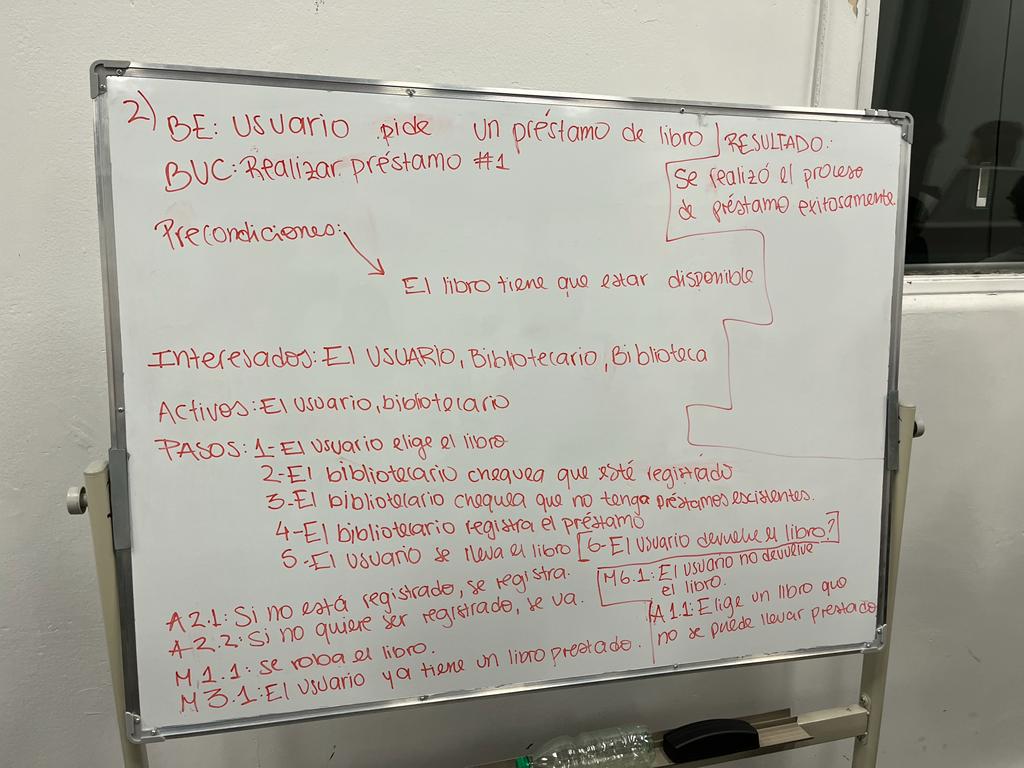 2) BE: Usuario pide un préstamo de libro
BUC: Realizar préstamo #1
RESULTADO:
Se realizó el proceso
de préstamo exitosamente
Precondiciones:
El libro tiene que estar disponible
Interesados: El USUARIO, Bibliotecario, Biblioteca
Activos: El usuario, bibliotecario
PASOS: 1-El usuario elige el libro
2-El bibliotecario chequea que esté registrado
3-El bibliotecario chequea que no tenga préstamos existentes.
4-El bibliotecario registra el préstamo
5-El usuario se lleva el libro
6-El usuario devuelve el libro?
M6.1: El usuario no devuelve
el libro.
A2.1: Si no está registrado, se registra.
A2.2: Si no quiere ser registrado, se va.
M.1.1: se roba el libro.
M3.1: El usuario ya tiene un libro prestado.
A1.1: Elige un libro que
no se puede llevar prestado